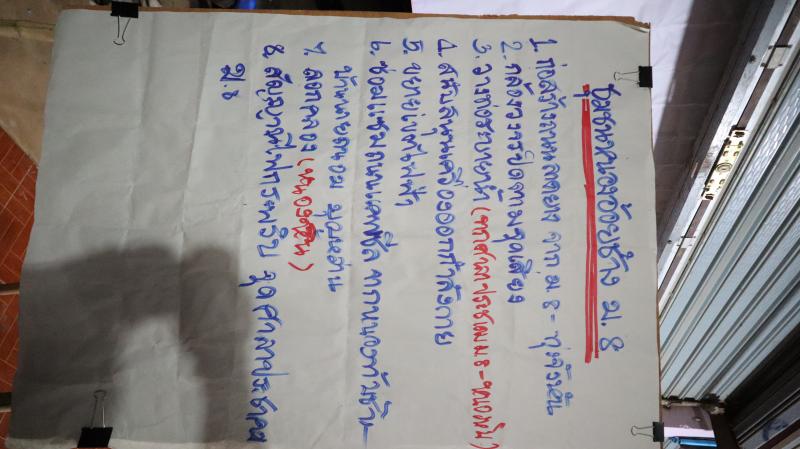 ชุมชนหนองอ้อยช้าง ม.8
1. ก่อสร้างถนนลาดยาง จาก ม.8 - ทุ่งติ้วเป็น
2. กล้องวงจรปิดตามจุดเสี่ยง
3. วางท่อระบายน้ำ (จากศาลาประชาคม ม.8 - หนองหิน)
4. สนับสนุนเครื่องออกกำลังกาย
5. ขยายเขตไฟฟ้า
6. ซ่อมแซมถนนแอสฟัลต์ จากหนองอ้อยช้าง -
บ้านนายถนอม บุญหล้า
7. ลอกคลอง (หนองหิน)
8. สัญญาณไฟกระพริบ จุดศาลาประชาคม
ม.8